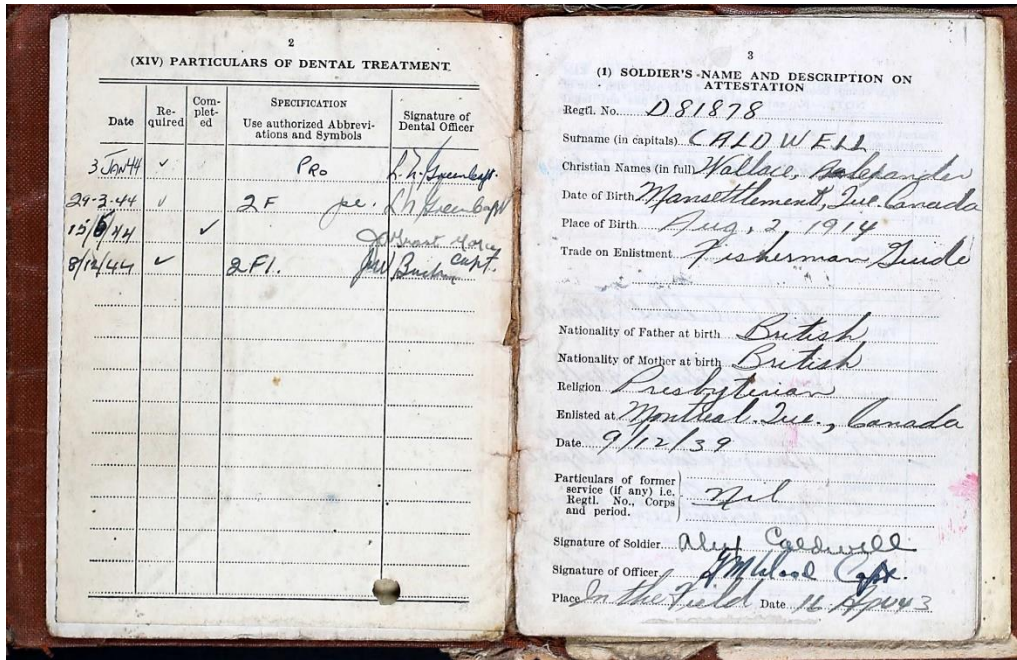 2
(XIV) PARTICULARS OF DENTAL TREATMENT
Date
Re-
quired
Com-
plet-
ed
SPECIFICATION
Use authorized Abbrevi-
ations and Symbols
Signature of
Dental Officer
3 JAN 44 ✓ PRO
29-3-44 ✓ 2F
15/6/44 ✓ Grant
8/12/44 ✓ 2F1. Capt.
3
(I) SOLDIER'S NAME AND DESCRIPTION ON
ATTESTATION
Regtl. No. D81878
Surname (in capitals) CALDWELL
Christian Names (in full) Wallace, Alexander
Date of Birth Mansettlement, Que. Canada
Place of Birth Aug, 2, 1914
Trade on Enlistment Fisherman Guide
Nationality of Father at birth British
Nationality of Mother at birth British
Religion Presbyterian
Enlisted at Montreal. Que., Canada
Date 9/12/39
Particulars of former
service (if any) i.e.
Regtl. No., Corps
and period.
Nil
Signature of Soldier Alex Caldwell
Signature of Officer Capt.
Place In the Field Date 16 Apr 43